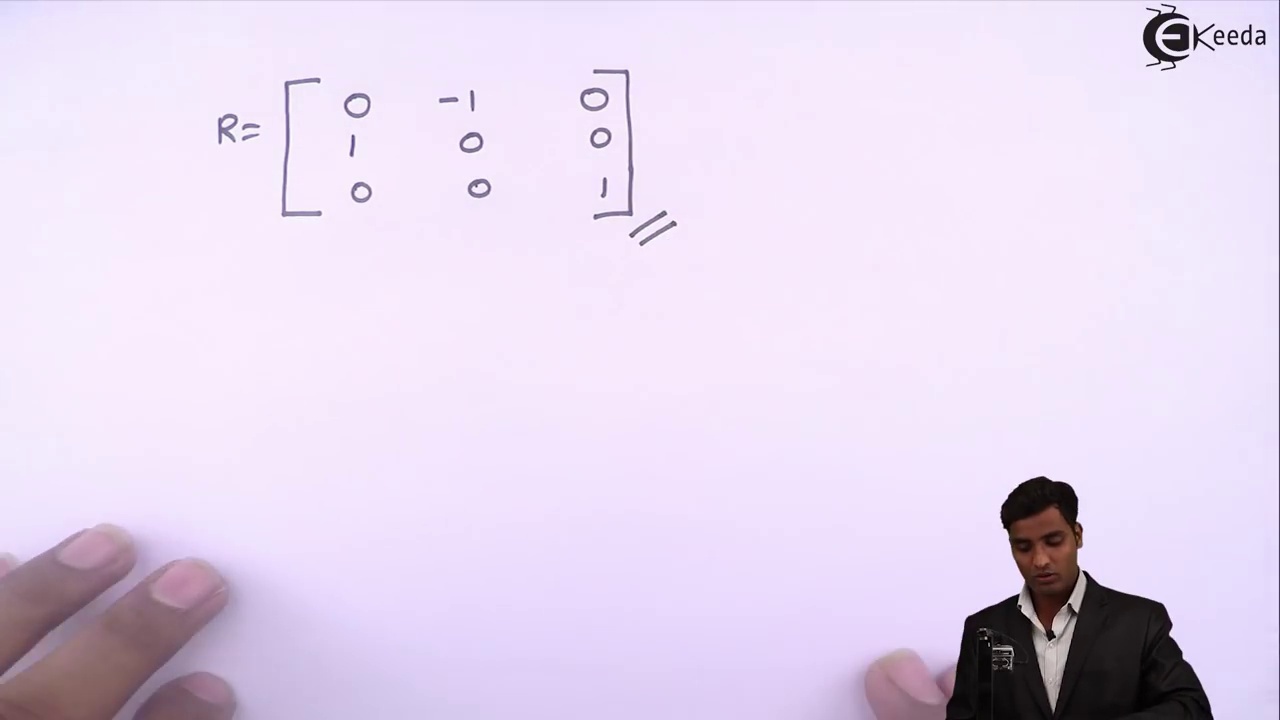 EKeeda
0 -1 0
R= 1 0 0
0 0 1